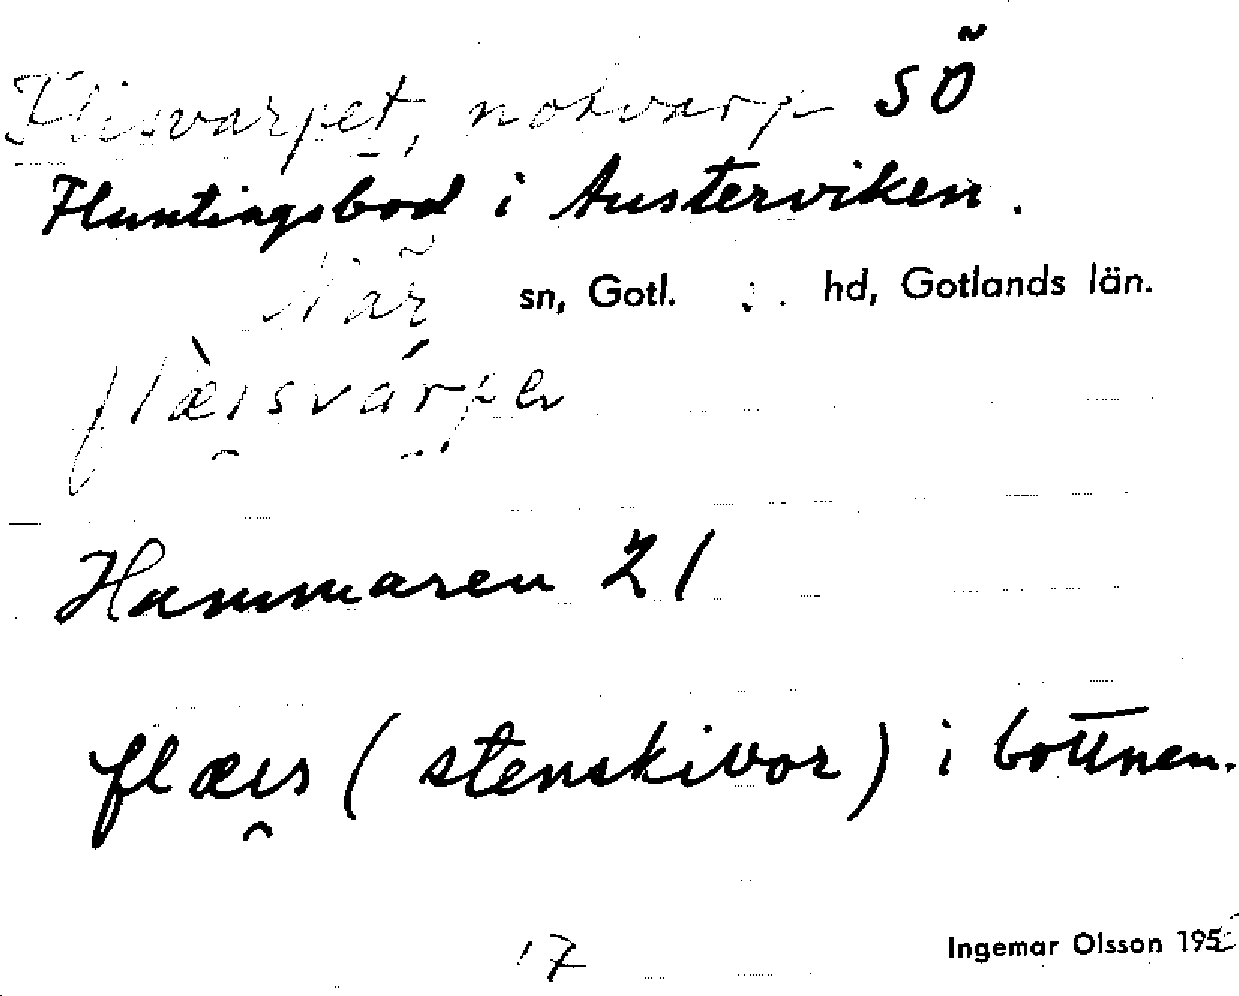 Flisvarpet, notvarp SÖ
Fluntingsbod i Austerviken.
När sn, Gotl. hd, Gotlands län.
flæisvarpe
Hammaren 21
flæis (stenskivor) i bottnen.
17 Ingemar Olsson 195